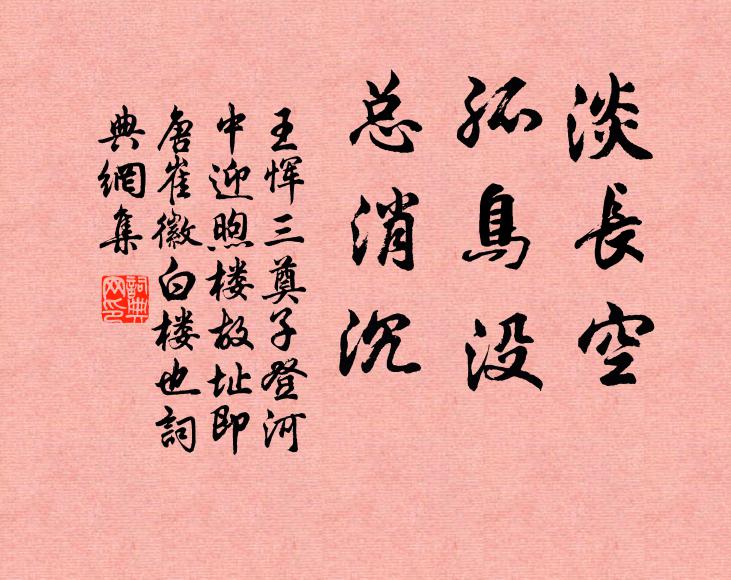 淡長空
孤鳥没
总消沉
王恽三奠子登河
中迎煦楼故址即
唐崔徽白楼也詞
典網集
詞典网印